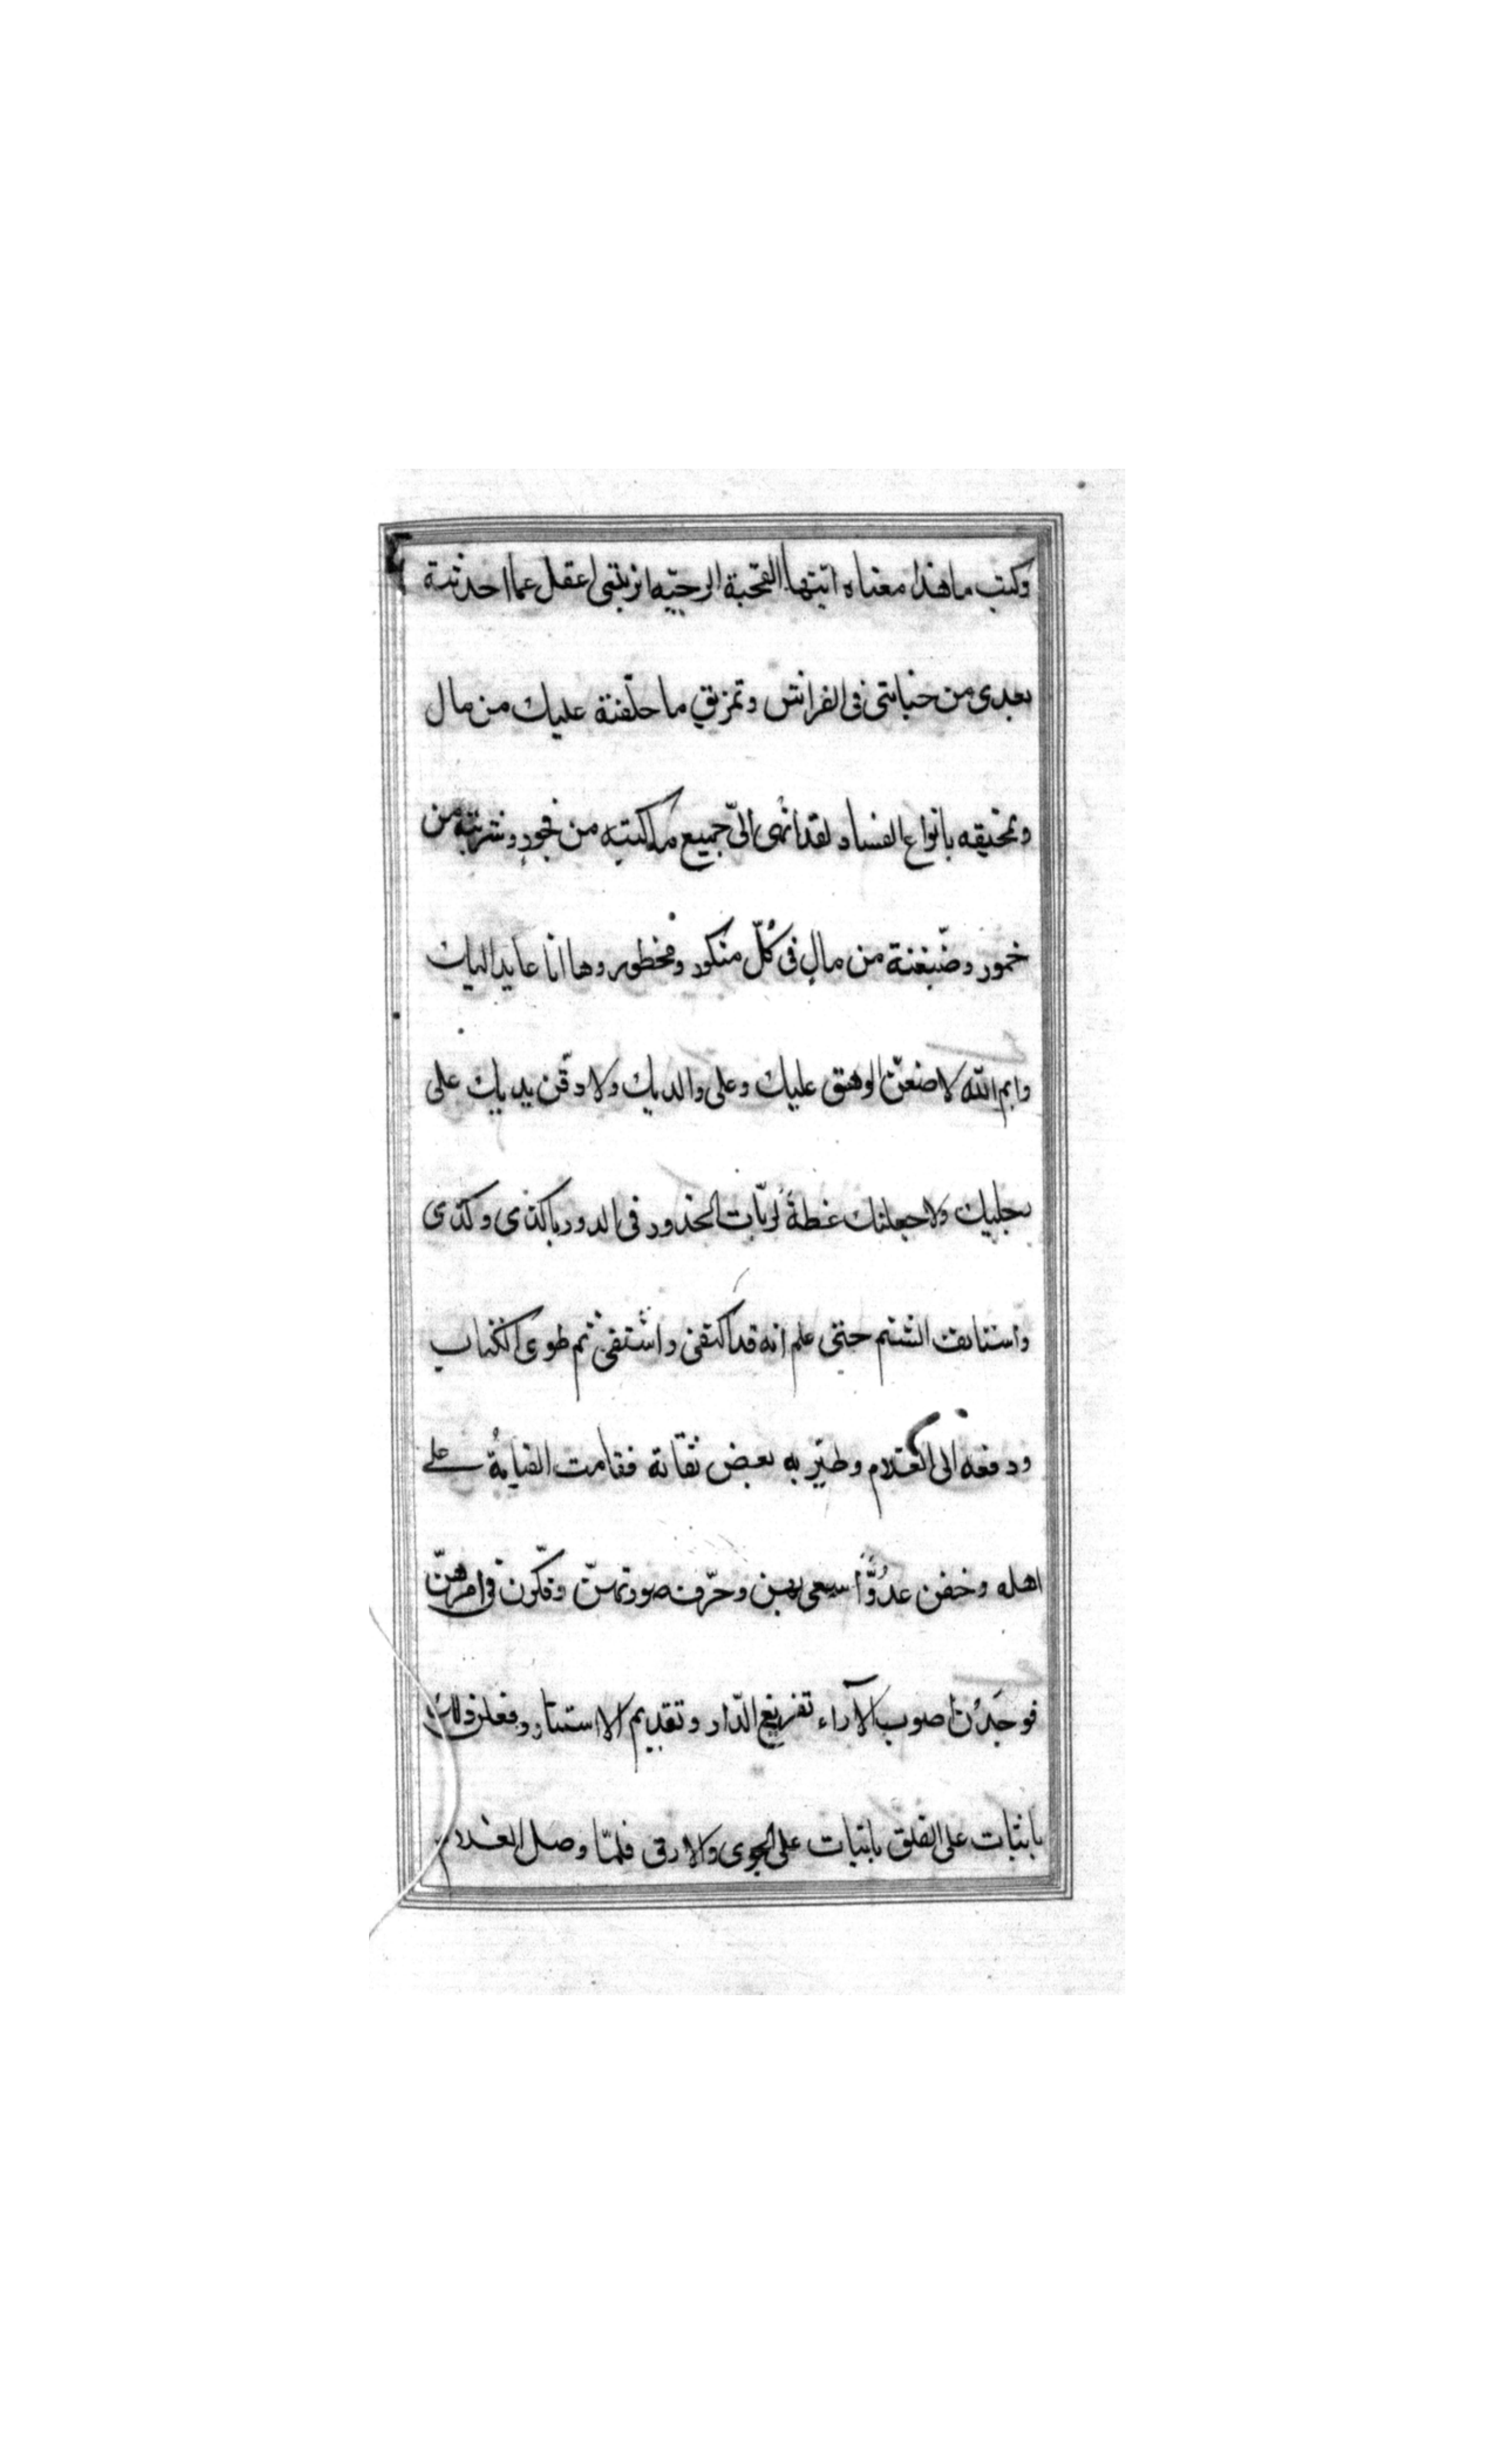 وكتب ما هذا معناه ايتها القحبة الرحبة اتريني اعقل عما احدثتة
بعدى من خيانتى فى الفراش وتمزيق ما خلّفتة عليك من مال
وتمحيقه بانواع الفساد لقد انهى الىّ جميع ما ركبتيه من فجور وشربتيه من
خمور وضّيعتة من مال فى كُلّ منكور ومحظور وها انا عايد اليك
وايم الله لاضعنّ الوهق عليك وعلى والديك ولادقّن يديك على
رجليك ولاجعلنك عظةً لربّات الخدور فى الدور يا كذى وكذى
واستانف الشتم حتى علم انه قد اكتفى واشتفى ثم طوى الكتاب
ودفعه الى الغلام وطيّر به بعض ثقاته فقامت القيامةُ على
اهله وخفن عدُوًّا سعى بهن وحرّف صورتهنّ وفكّرن فى امرهنّ
فوجَدْن اصوب الآراء تفريغ الدّار وتقديم الاستتار وفعلن ذلك
باتبات على القلق باتبات على الجوى والارق فلمّا وصل الغلام